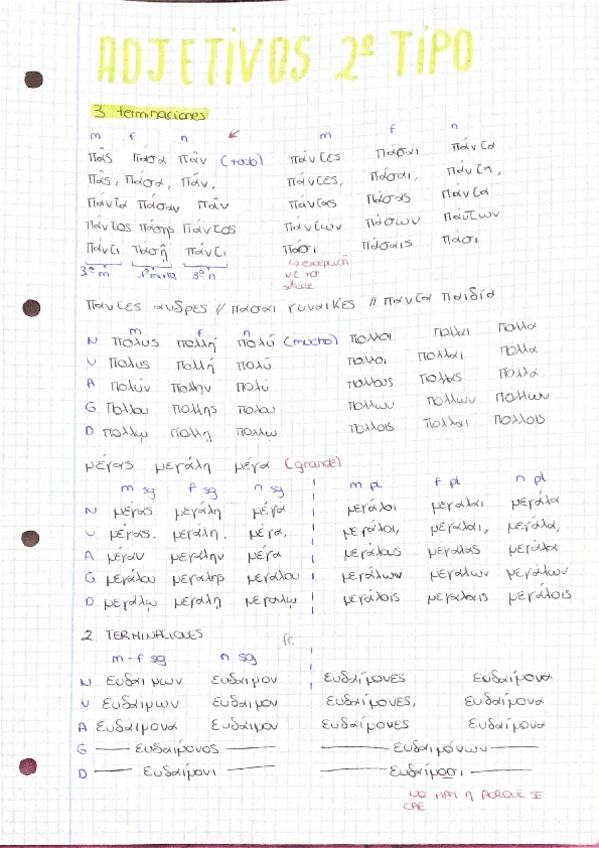 ADJETIVOS 2º TIPO
3 terminaciones
m f n m f n
πᾶς πᾶσα πᾶν (todo) πάντες πᾶσαι πάντα
πᾶς, πᾶσα, πᾶν, πάντες, πᾶσαι, πάντα,
πάντα πᾶσαν πᾶν πάντας πάσας πάντα
πάντος πάσης πάντος πάντων πάσων πάντων
πάντι πάσῃ πάντι πᾶσι πάσαις πᾶσι
3ª m 1ª mixta 3ª n ↳ excepción
ντ + σ
se cae
παντες ανδρες // πασαι γυναικες // παντα παιδία
m f n
N πολυς πολλή πολύ (mucho) πολλοι πολλαι πολλα
V πολυς πολλή πολύ πολλοι πολλαι πολλα
A πολύν πολλην πολύ πολλους πολλας πολλα
G πολλου πολλης πολλου πολλων πολλων πολλων
D πολλῳ πολλῃ πολλῳ πολλοις πολλαι πολλοις
μέγας μεγάλη μέγα (grande)
m sg f sg n sg m pl f pl n pl
N μέγας μεγάλη μέγα μεγάλοι μεγαλαι μεγάλα
V μέγας, μεγάλη, μέγα, μεγάλοι, μεγαλαι, μεγάλα,
A μέγαν μεγάλην μέγα μεγάλους μεγαλας μεγάλα
G μεγάλου μεγαλης μεγαλου μεγάλων μεγαλων μεγάλων
D μεγαλῳ μεγαλῃ μεγαλῳ μεγάλοις μεγαλαις μεγάλοις
2 TERMINACIONES
m-f sg n sg
N ευδαιμων ευδαιμον ευδαίμονες ευδαίμονα
V ευδαίμων ευδαίμον ευδαίμονες, ευδαίμονα
A ευδαίμονα ευδαίμον ευδαίμονες ευδαίμονα
G ευδαίμονος ευδαιμόνων
D ευδαίμονι ευδαίμοσι
NO HAY η PORQUE SE
CAE